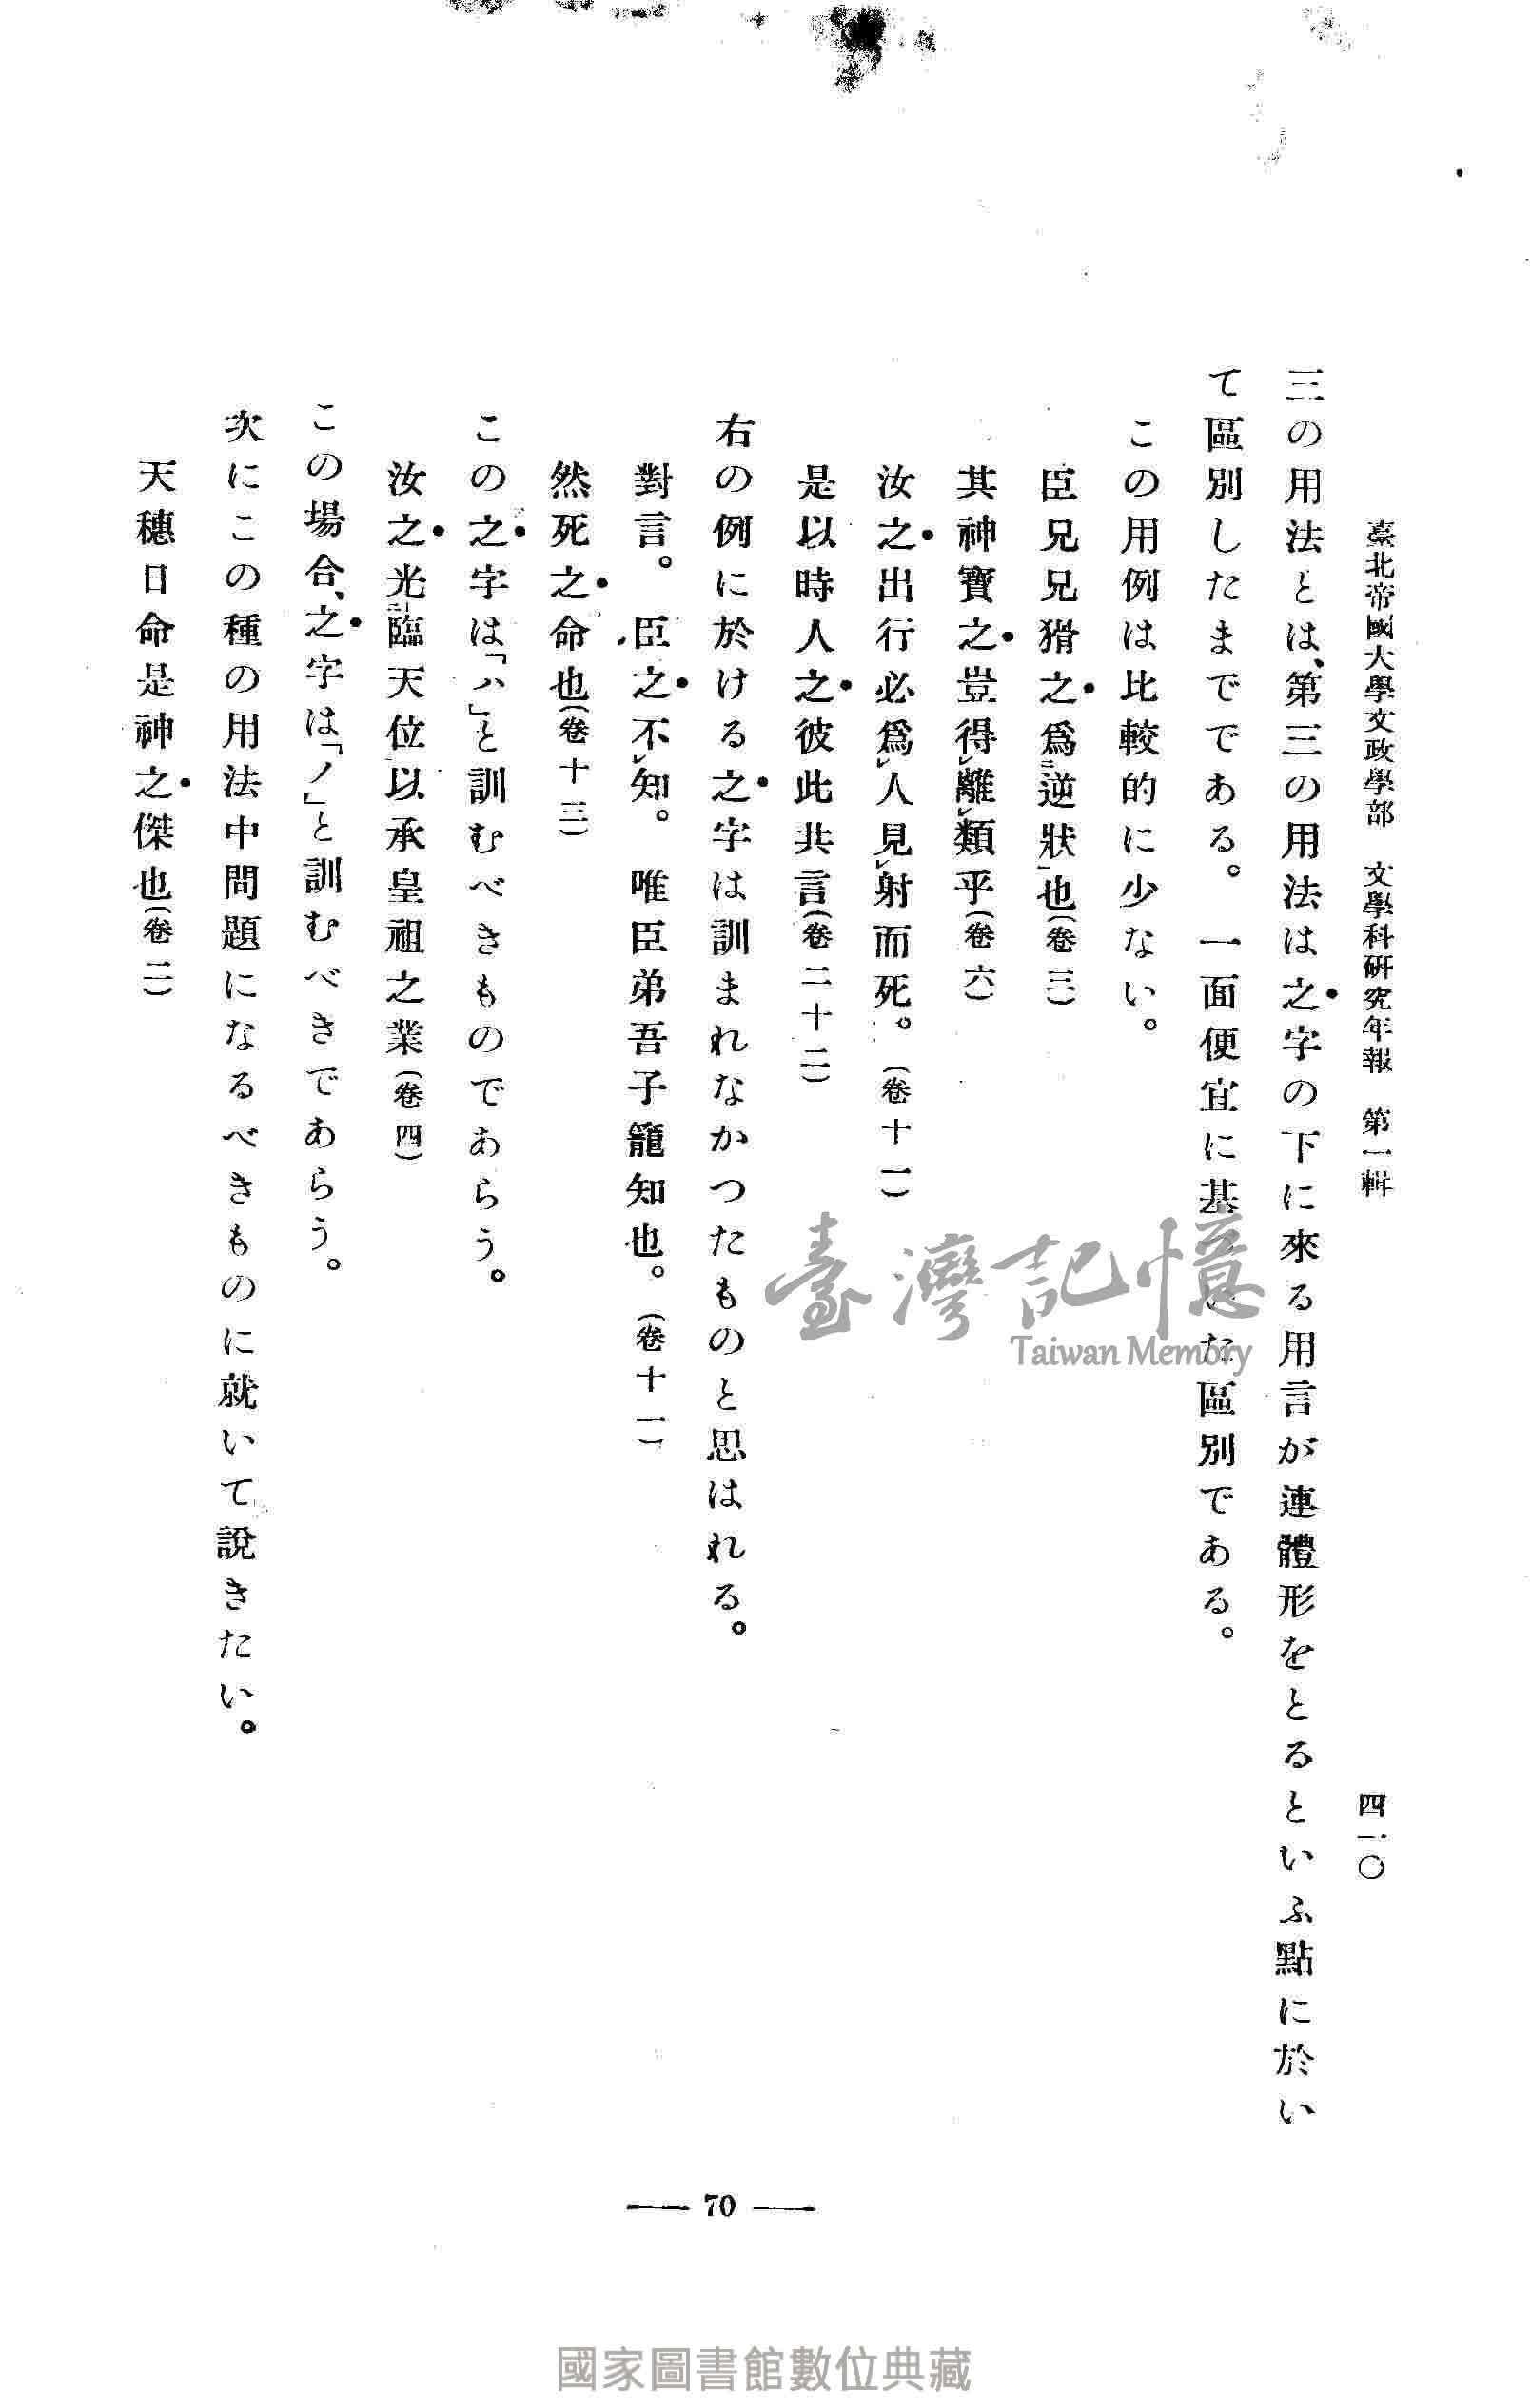 臺北帝國大學文政學部　文學科研究年報　第一輯　四一〇
三の用法とは、第三の用法は之字の下に來る用言が連體形をとるといふ點に於い
て區別したまでである。一面便宜に基づいた區別である。
この用例は比較的に少ない。
臣兄兄猾之爲㆓逆狀㆒也(卷三)
其神寶之豈得㆑離㆑類乎(卷六)
汝之出行必爲㆑人見㆑射而死。(卷十一)
是以時人之彼此共言(卷二十二)
右の例に於ける之字は訓まれなかつたものと思はれる。
對言。臣之不㆑知。唯臣弟吾子籠知也。(卷十一)
然死之命也(卷十三)
この之字は「ハ」と訓むべきものであらう。
汝之光㆓臨天位㆒以承皇祖之業(卷四)
この場合、之字は「ノ」と訓むべきであらう。
次にこの種の用法中問題になるべきものに就いて說きたい。
天穗日命是神之傑也(卷二)
— 70 —
臺灣記憶
Taiwan Memory
國家圖書館數位典藏